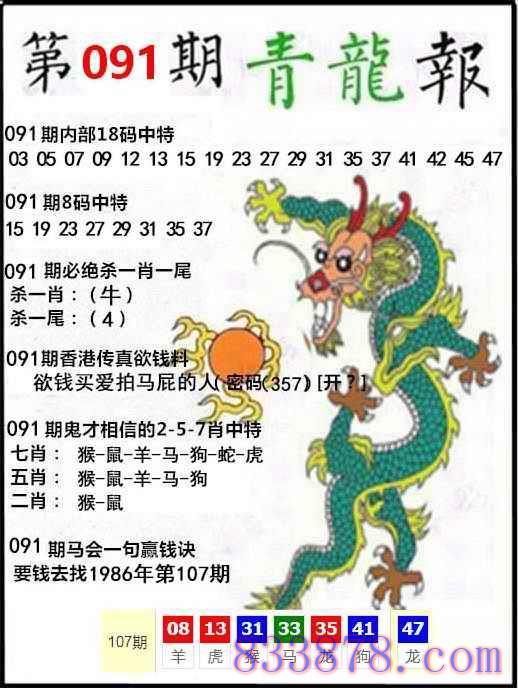 第091期青龍報
091期内部18码中特
03 05 07 09 12 13 15 19 23 27 29 31 35 37 41 42 45 47
091期8码中特
15 19 23 27 29 31 35 37
091期必绝杀一肖一尾
杀一肖：（牛）
杀一尾：（4）
091期香港传真欲钱料
欲钱买爱拍马屁的人(密码(357)[开？]
091期鬼才相信的2-5-7肖中特
七肖： 猴-鼠-羊-马-狗-蛇-虎
五肖： 猴-鼠-羊-马-狗
二肖： 猴-鼠
091期马会一句赢钱诀
要钱去找1986年第107期
107期 08 13 31 33 35 41 47
羊 虎 猴 马 龙 狗 龙
833878.com